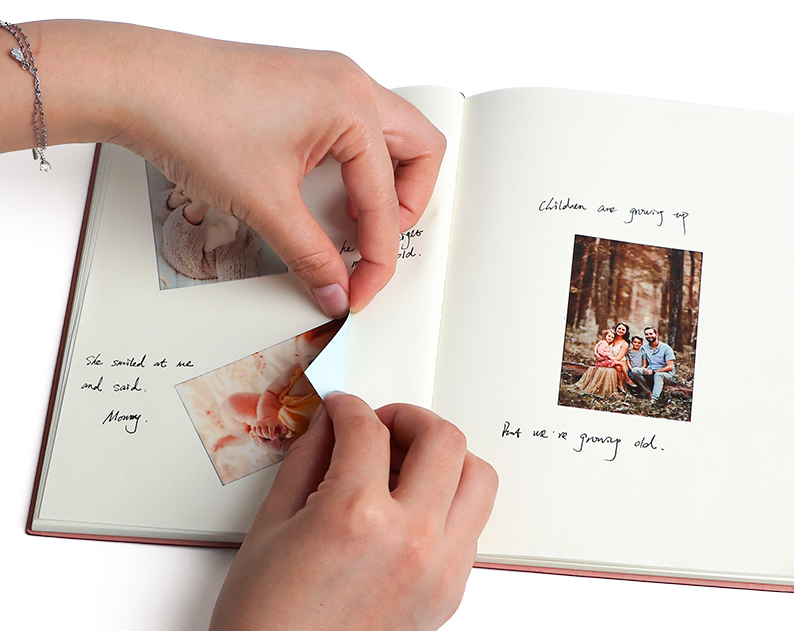 old.
She smiled at me
and said.
Mommy.
Children are growing up
But we're growing old.